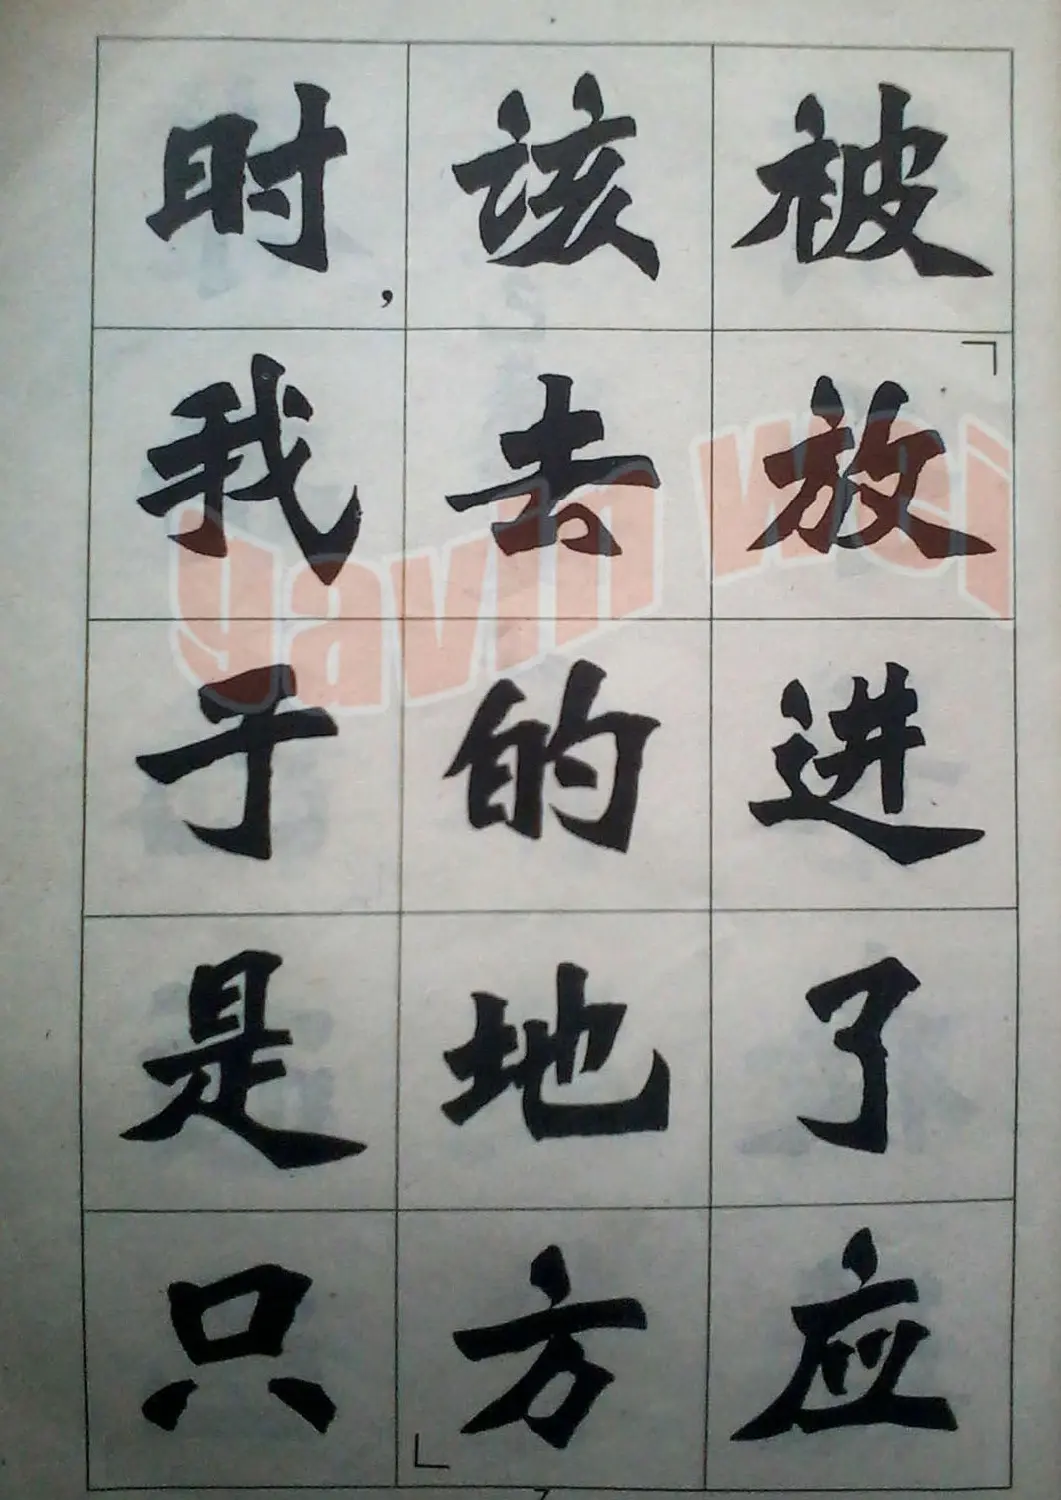 被「放进了应
该去的地方」
时，我于是只
gavin wei